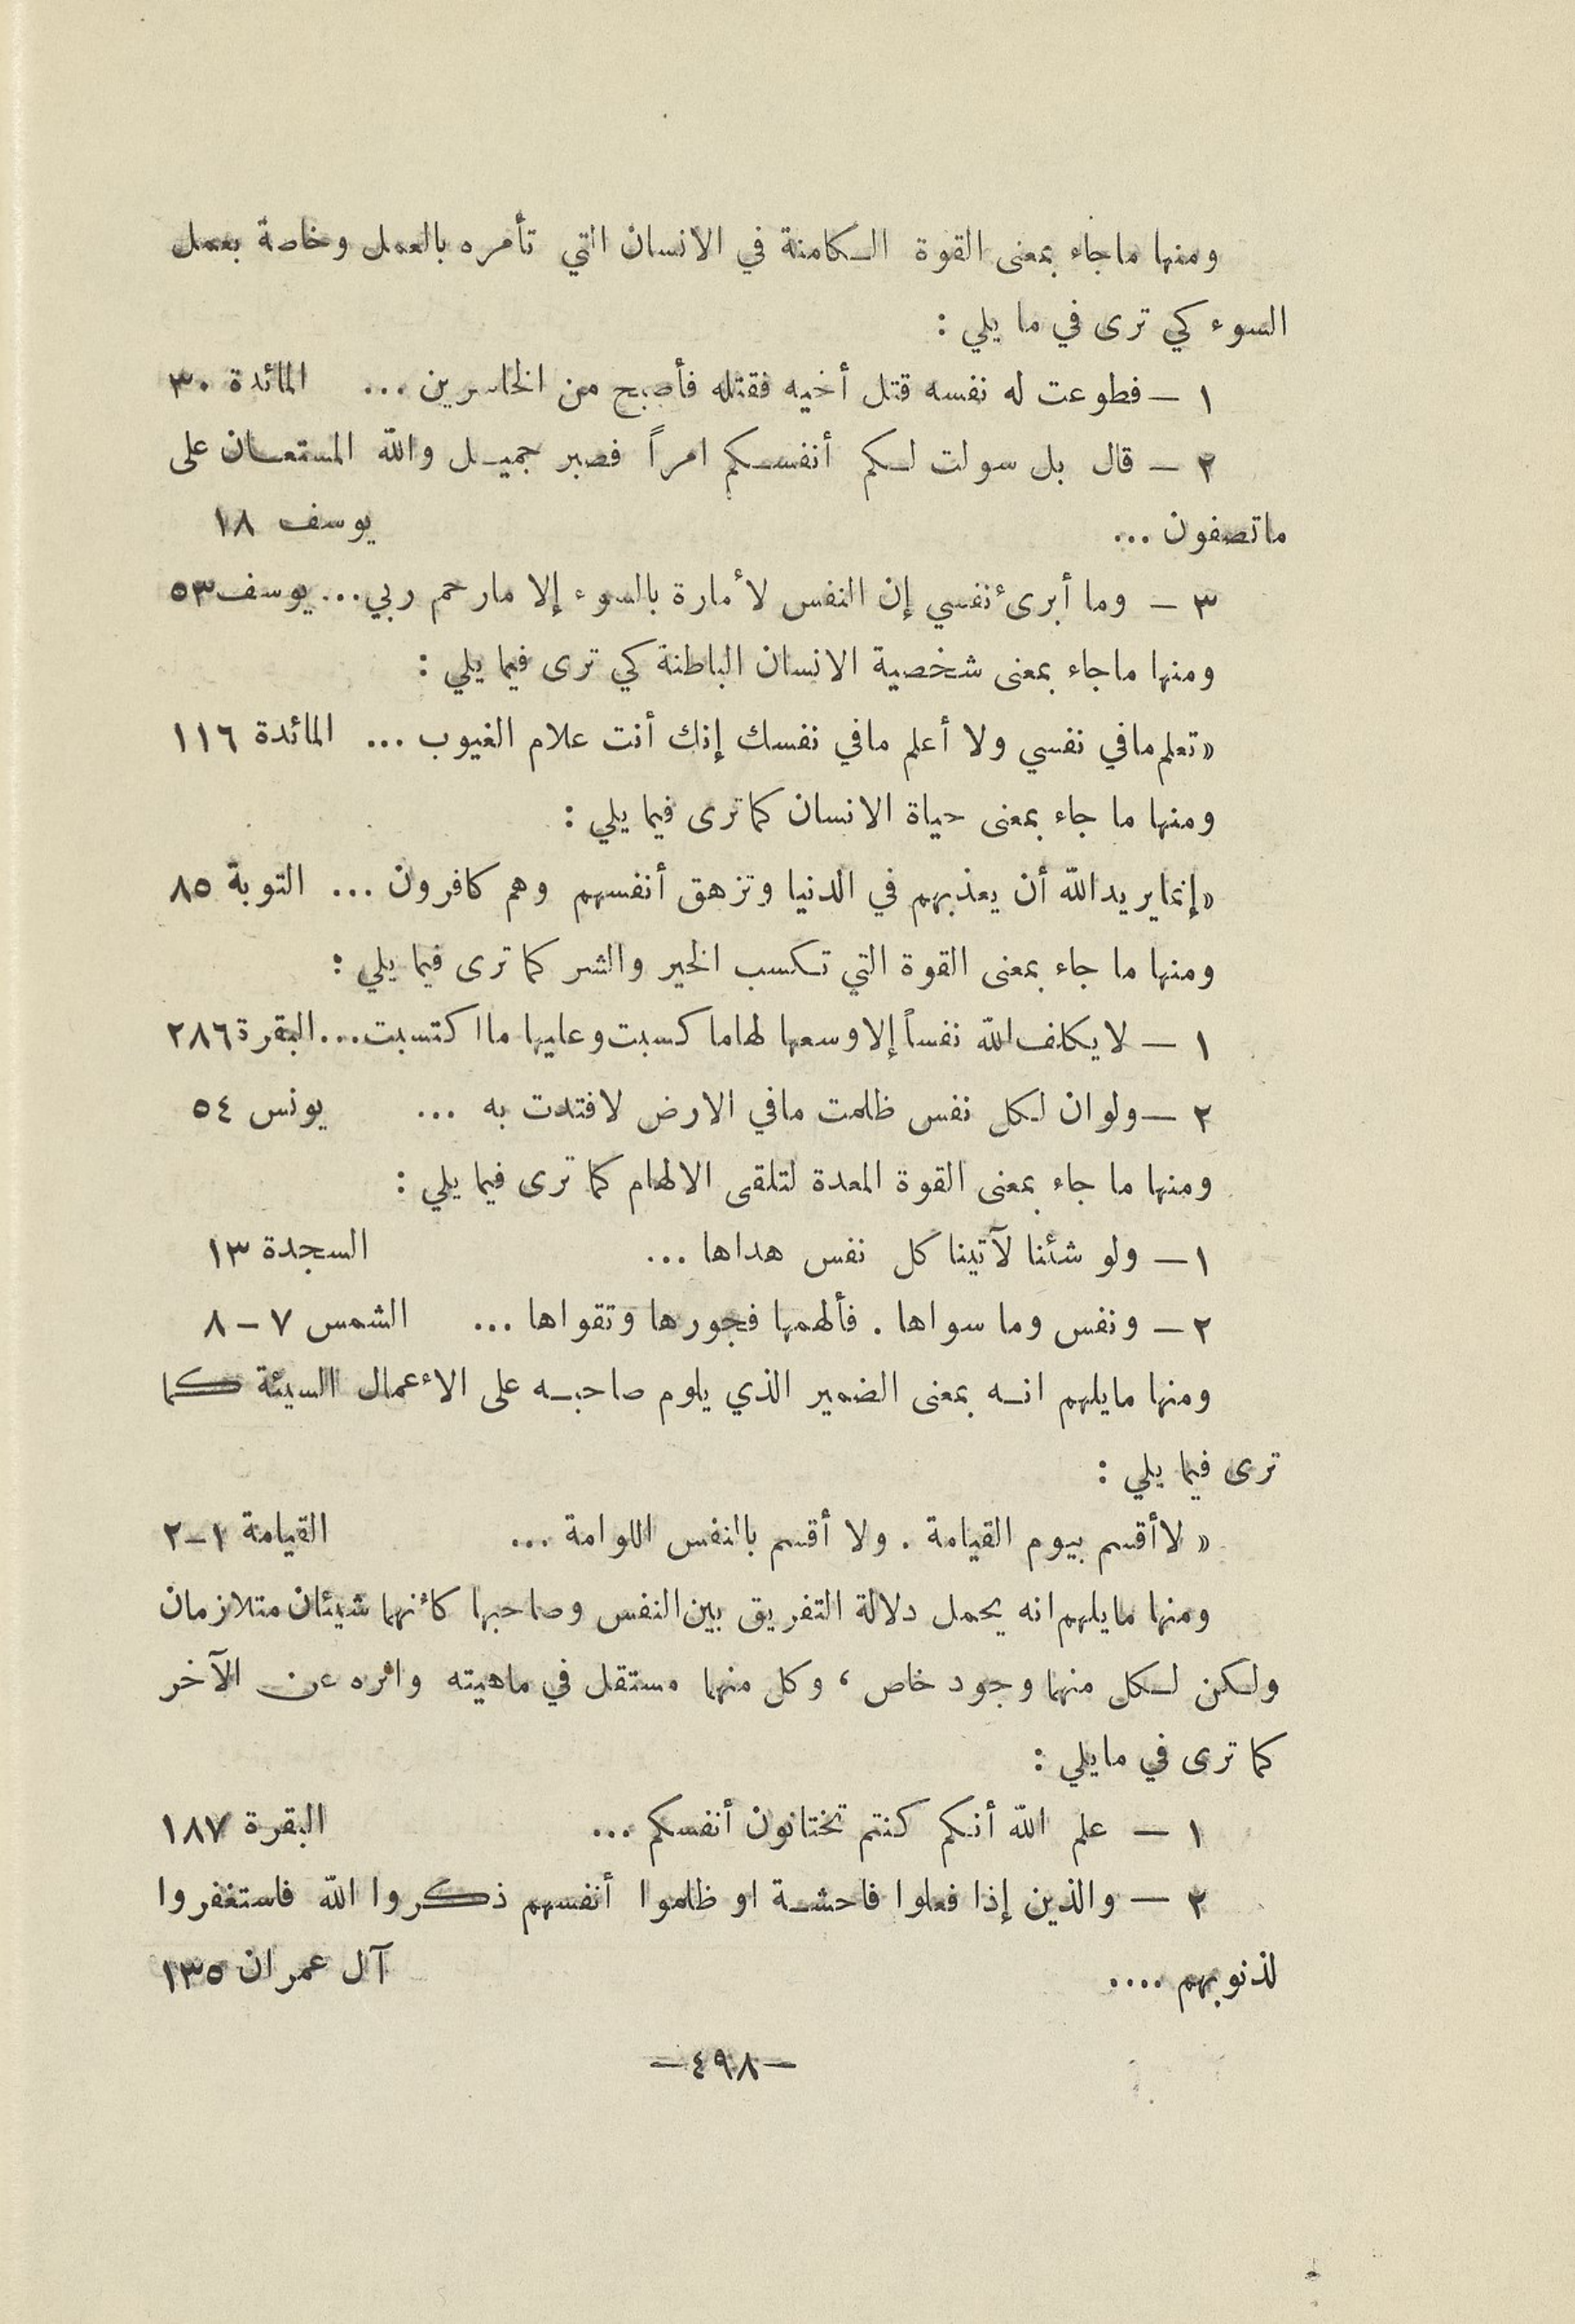 ومنها ماجاء بمعنى القوة الكامنة في الانسان التي تأمره بالعمل وخاصة بعمل
السوء كي ترى في ما يلي :
١ — فطوعت له نفسه قتل أخيه فقتله فأصبح من الخاسرين ... المائدة ٣٠
٢ — قال بل سولت لكم أنفسكم امراً فصبر جميل والله المستعان على
ماتصفون ... يوسف ١٨
٣ — وما أبرئ نفسي إن النفس لأمارة بالسوء إلا مارحم ربي... يوسف ٥٣
ومنها ماجاء بمعنى شخصية الانسان الباطنة كي ترى فيما يلي :
« تعلم مافي نفسي ولا أعلم مافي نفسك إنك أنت علام الغيوب ... المائدة ١١٦
ومنها ما جاء بمعنى حياة الانسان كما ترى فيما يلي :
« إنما يريد الله أن يعذبهم في الدنيا وتزهق أنفسهم وهم كافرون ... التوبة ٨٥
ومنها ما جاء بمعنى القوة التي تكسب الخير والشر كما ترى فيما يلي :
١ — لايكلف الله نفساً إلا وسعها لها ما كسبت وعليها ما اكتسبت... البقرة ٢٨٦
٢ — ولو ان لكل نفس ظلمت مافي الارض لافتدت به ... يونس ٥٤
ومنها ما جاء بمعنى القوة المعدة لتلقى الالهام كما ترى فيما يلي :
١ — ولو شئنا لآتينا كل نفس هداها ... السجدة ١٣
٢ — ونفس وما سواها . فألهمها فجورها وتقواها ... الشمس ٧ – ٨
ومنها مايلهم انه بمعنى الضمير الذي يلوم صاحبه على الأعمال السيئة كما
ترى فيما يلي :
« لاأقسم بيوم القيامة . ولا أقسم بالنفس اللوامة ... القيامة ١–٢
ومنها مايلهم انه يحمل دلالة التفريق بين النفس وصاحبها كأنهما شيئان متلازمان
ولكن لكل منهما وجود خاص ، وكل منهما مستقل في ماهيته واثره عن الآخر
كما ترى في مايلي :
١ — علم الله أنكم كنتم تختانون أنفسكم ... البقرة ١٨٧
٢ — والذين إذا فعلوا فاحشة او ظلموا أنفسهم ذكروا الله فاستغفروا
لذنوبهم .... آل عمران ١٣٥
—٤٩٨—